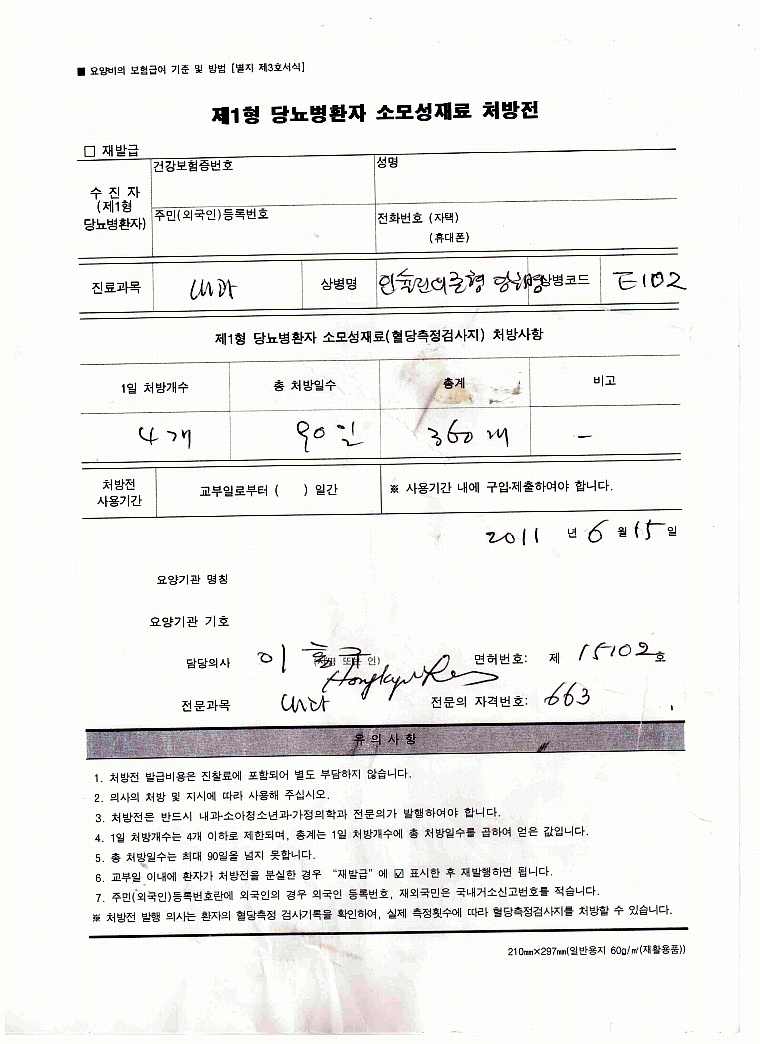 ■ 요양비의 보험급여 기준 및 방법 [별지 제3호서식]
제1형 당뇨병환자 소모성재료 처방전
□ 재발급
수 진 자
(제1형
당뇨병환자)
건강보험증번호
성명
주민(외국인)등록번호
전화번호 (자택)
(휴대폰)
진료과목 내과 상병명 인슐린의존형 당뇨병 상병코드 E102
제1형 당뇨병환자 소모성재료(혈당측정검사지) 처방사항
1일 처방개수 총 처방일수 총계 비고
4개 90일 360개 –
처방전
사용기간
교부일로부터 ( ) 일간
※ 사용기간 내에 구입·제출하여야 합니다.
2011 년 6 월 15 일
요양기관 명칭
요양기관 기호
담당의사 이홍규 (서명 또는 인) 면허번호: 제 15102 호
전문과목 내과 전문의 자격번호: 663
유 의 사 항
1. 처방전 발급비용은 진찰료에 포함되어 별도 부담하지 않습니다.
2. 의사의 처방 및 지시에 따라 사용해 주십시오.
3. 처방전은 반드시 내과·소아청소년과·가정의학과 전문의가 발행하여야 합니다.
4. 1일 처방개수는 4개 이하로 제한되며, 총계는 1일 처방개수에 총 처방일수를 곱하여 얻은 값입니다.
5. 총 처방일수는 최대 90일을 넘지 못합니다.
6. 교부일 이내에 환자가 처방전을 분실한 경우 “재발급”에 ☑ 표시한 후 재발행하면 됩니다.
7. 주민(외국인)등록번호란에 외국인의 경우 외국인 등록번호, 재외국민은 국내거소신고번호를 적습니다.
※ 처방전 발행 의사는 환자의 혈당측정 검사기록을 확인하여, 실제 측정횟수에 따라 혈당측정검사지를 처방할 수 있습니다.
210㎜×297㎜(일반용지 60g/㎡(재활용품))